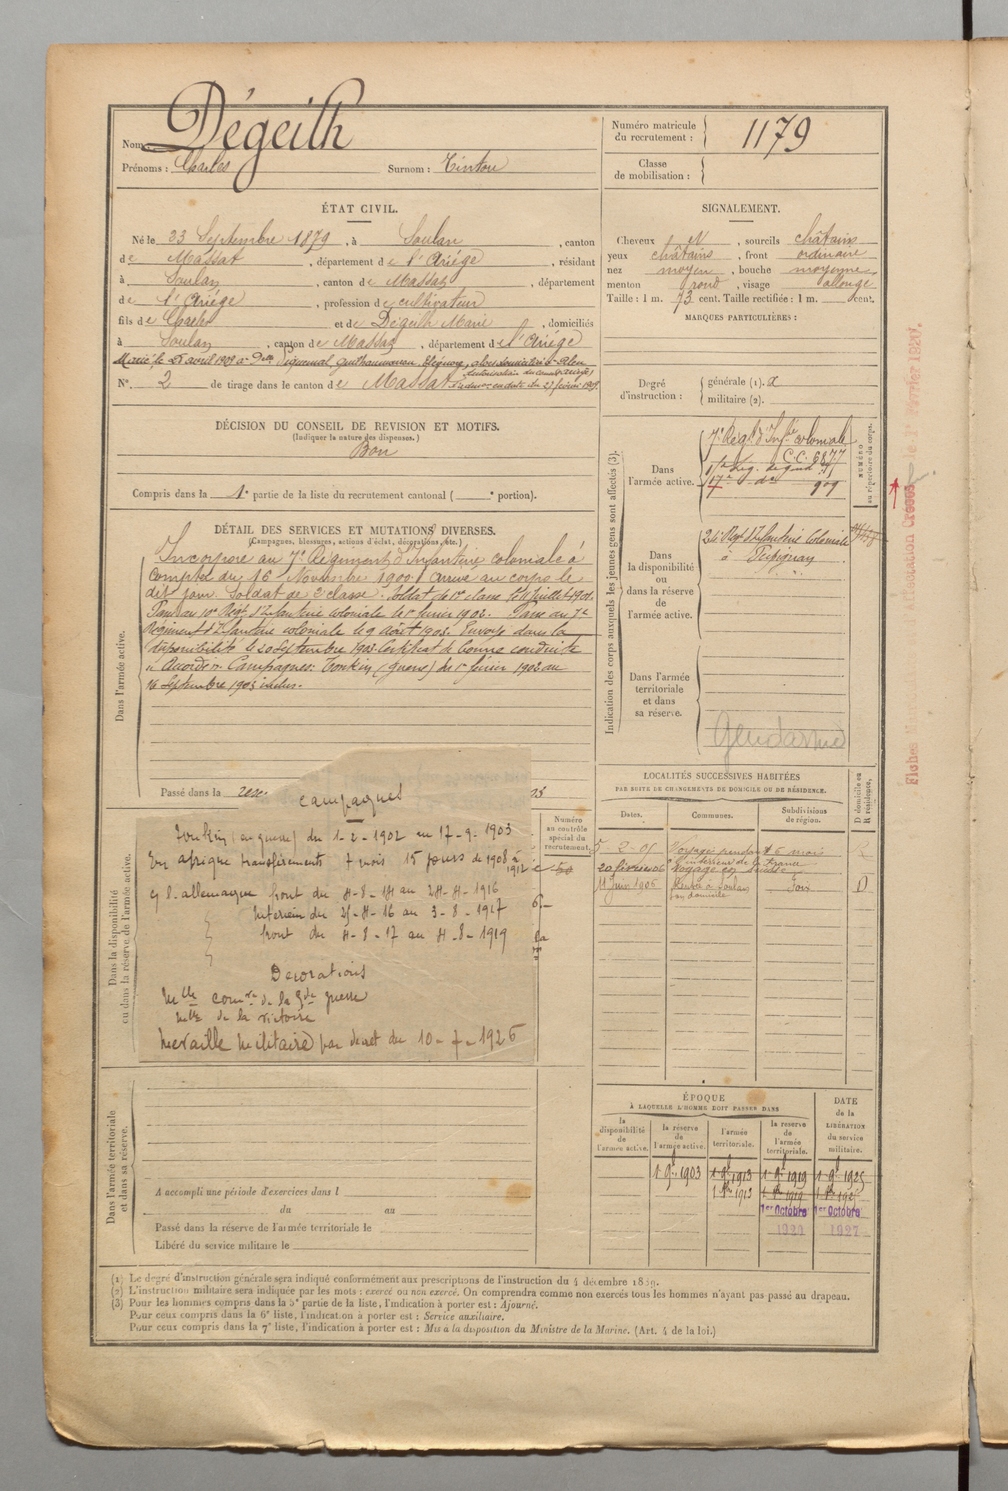 Nom Dégeilh
Prénoms : Charles Surnom : Tintou
Numéro matricule du recrutement : 1179
Classe de mobilisation :
ÉTAT CIVIL.
Né le 23 Septembre 1879, à Soulan, canton
de Massat, département de l'Ariége, résidant
à Soulan, canton de Massat, département
de l'Ariége, profession de cultivateur
fils de Charles et de Dégeilh Marie, domiciliés
à Soulan, canton de Massat, département de l'Ariége
Marié le 28 avril 1909 à Dlle
N°. 2 de tirage dans le canton de Massat
SIGNALEMENT.
Cheveux N, sourcils châtains
yeux châtains, front ordinaire
nez moyen, bouche moyenne
menton rond, visage allongé
Taille : 1 m. 73 cent. Taille rectifiée : 1 m. cent.
MARQUES PARTICULIÈRES :
Degré d'instruction : générale (1). 2
militaire (2).
DÉCISION DU CONSEIL DE REVISION ET MOTIFS.
(Indiquer la nature des dispenses.)
Bon
Compris dans la 1e partie de la liste du recrutement cantonal ( e portion).
DÉTAIL DES SERVICES ET MUTATIONS DIVERSES.
(Campagnes, blessures, actions d'éclat, décorations, etc.)
Dans l'armée active.
Incorporé au 7e Régiment d'Infanterie coloniale à
compter du 16 Novembre 1900. Arrivé au corps le
dit jour. Soldat de 2e classe. Soldat de 1re classe le 11 juillet 1901.
Passé au 10e Régt d'Infanterie coloniale le 1er février 1902. Passé au 7e
Régiment d'Infanterie coloniale le 9 Août 1903. Envoyé dans la
disponibilité le 20 septembre 1903. Certificat de bonne conduite
"Accordé". Campagnes: Tonkin (guerre) du 1er février 1902 au
16 Septembre 1903 inclus.
Indication des corps auxquels les jeunes gens sont affectés (3).
NUMÉRO au répertoire du corps.
Dans l'armée active.
7e Régt d'Infie coloniale
C.C. 6877
17e do 909
Dans la disponibilité ou dans la réserve de l'armée active.
24e Régt d'Infanterie Coloniale
à Perpignan
Dans l'armée territoriale et dans sa réserve.
Gendarmerie
Passé dans la
Dans la disponibilité ou dans la réserve de l'armée active.
Campagnes
Tonkin (en guerre) du 1-2-1902 au 17-9-1903
En afrique 7 mois 15 jours de 1908 à
1912
front du 4-8-14 au 24-4-1916
Intérieur du 25-4-16 au 3-8-1917
front du 4-8-17 au 4-8-1919
Decorations
Mlle comve de la gde guerre
Mlle de la victoire
Médaille Militaire par décret du 10-7-1926
Numéro au contrôle spécial du recrutement.
LOCALITÉS SUCCESSIVES HABITÉES
PAR SUITE DE CHANGEMENTS DE DOMICILE OU DE RÉSIDENCE.
Dates. Communes. Subdivisions de région. D domicile ou R résidence.
5-2-05 Voyage pendant 6 mois
à l'intérieur de la France R
20 février 06 Voyage en Suisse
11 Juin 1906 Rentré à Soulan son domicile Foix D
ÉPOQUE
À LAQUELLE L'HOMME DOIT PASSER DANS
la disponibilité de l'armée active. la réserve de l'armée active. l'armée territoriale. la réserve de l'armée territoriale.
DATE de la LIBÉRATION du service militaire.
1 9bre 1903 1 9bre 1913 1 9bre 1919 1 9bre 1925
1er Octobre 1er Octobre
1920 1927
Dans l'armée territoriale et dans sa réserve.
A accompli une période d'exercices dans l
du au
Passé dans la réserve de l'armée territoriale le
Libéré du service militaire le
(1) Le degré d'instruction générale sera indiqué conformément aux prescriptions de l'instruction du 4 décembre 1889.
(2) L'instruction militaire sera indiquée par les mots : exercé ou non exercé. On comprendra comme non exercés tous les hommes n'ayant pas passé au drapeau.
(3) Pour les hommes compris dans la 5e partie de la liste, l'indication à porter est : Ajourné.
Pour ceux compris dans la 6e liste, l'indication à porter est : Service auxiliaire.
Pour ceux compris dans la 7e liste, l'indication à porter est : Mis à la disposition du Ministre de la Marine. (Art. 4 de la loi.)